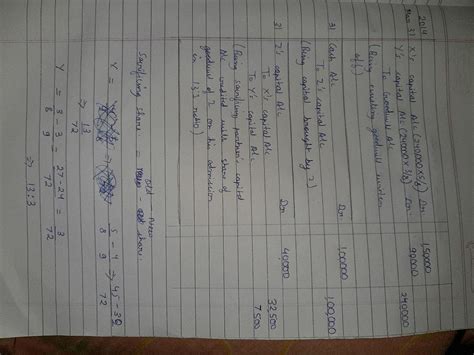 2014
Mar 31 X's capital A/c (240000×5/8) Dr. 1,50,000
Y's capital A/c (240000×3/8) Dr. 90,000
To Goodwill A/c 240,000
(Being existing goodwill written
off)
31 Cash A/c Dr. 1,00,000
To Z's capital A/c 1,00,000
(Being capital brought by Z)
31 Z's capital A/c Dr. 40,000
To X's capital A/c 32,500
To Y's capital A/c 7,500
(Being sacrificing partner's capital
A/c credited under share of
goodwill of Z on his admission
in 13:3 ratio)
Sacrificing share = old - new share
X = 5/8 - 4/9 ⇒ 45-32/72
⇒ 13/72
Y = 3/8 - 3/9 = 27-24/72 = 3/72
⇒ 13:3